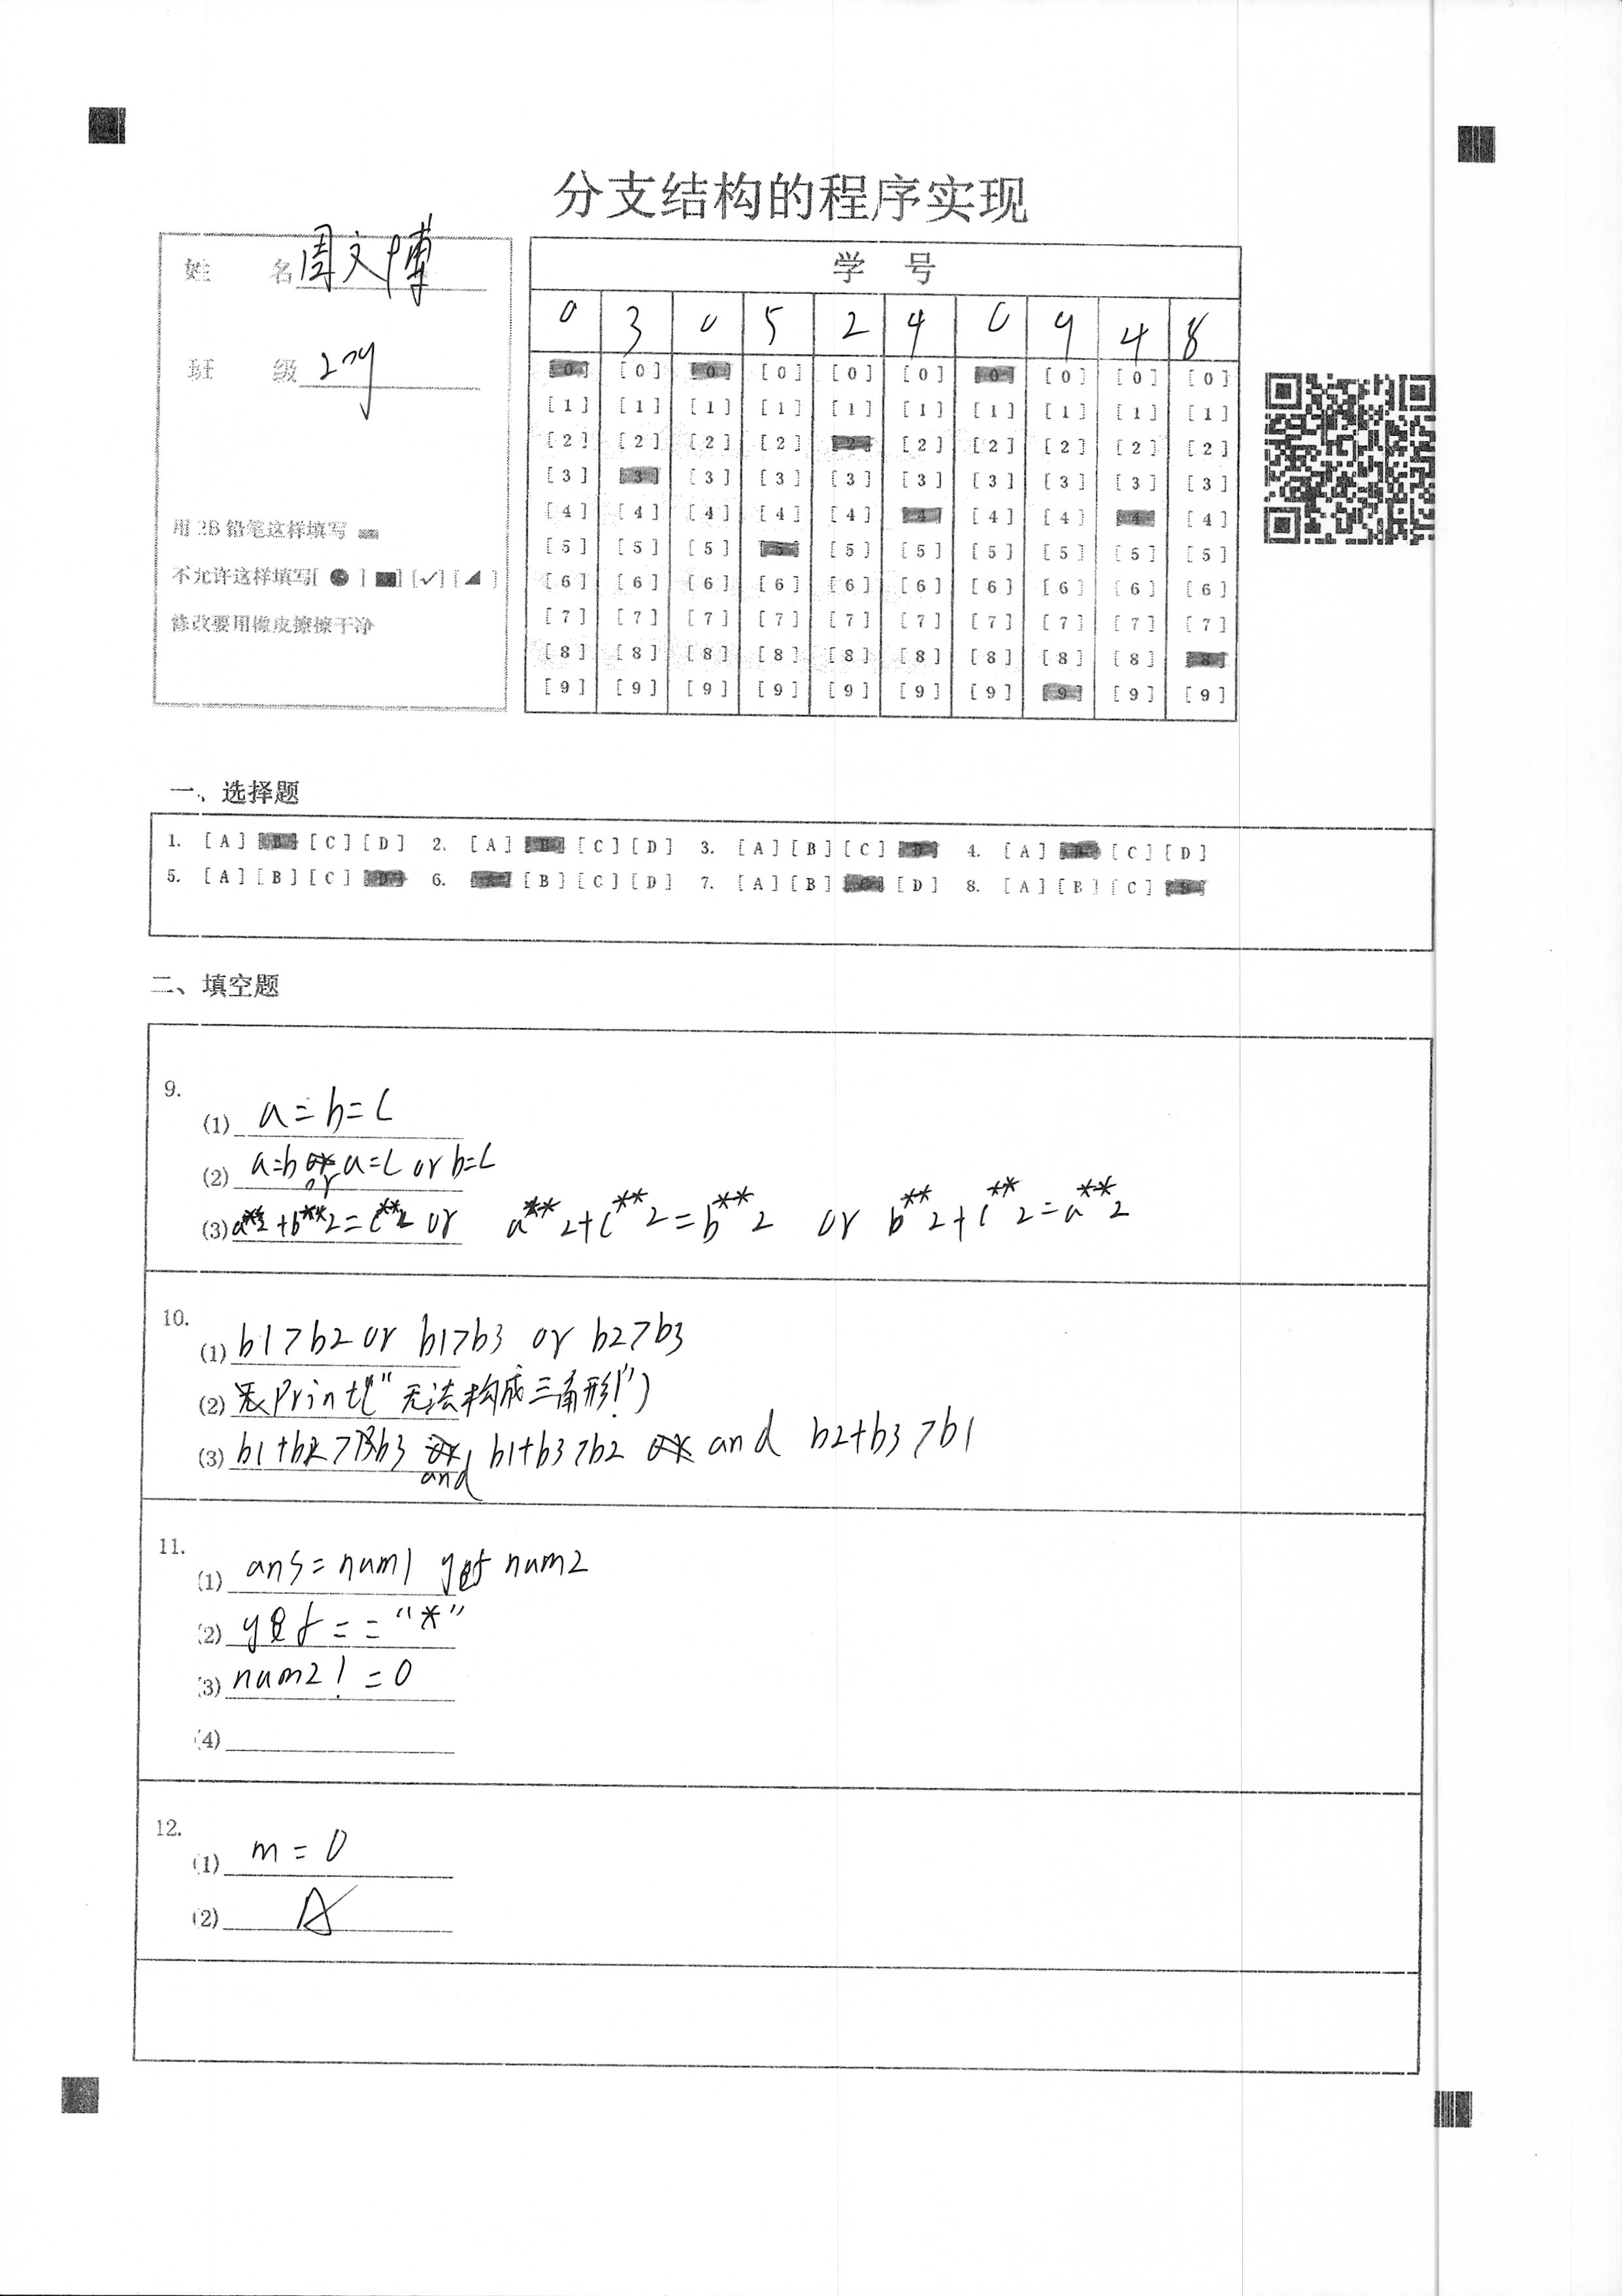 分支结构的程序实现
姓 名 周文博
班 级
用 2B 铅笔这样填写
不允许这样填写[ ● ] [■] [✓] [◢ ]
修改要用橡皮擦擦干净
学 号
0 3 0 5 2 4 0 9 4 8
[0] [0] [0] [0] [0] [0] [0] [0] [0] [0]
[1] [1] [1] [1] [1] [1] [1] [1] [1] [1]
[2] [2] [2] [2] [2] [2] [2] [2] [2] [2]
[3] [3] [3] [3] [3] [3] [3] [3] [3] [3]
[4] [4] [4] [4] [4] [4] [4] [4] [4] [4]
[5] [5] [5] [5] [5] [5] [5] [5] [5] [5]
[6] [6] [6] [6] [6] [6] [6] [6] [6] [6]
[7] [7] [7] [7] [7] [7] [7] [7] [7] [7]
[8] [8] [8] [8] [8] [8] [8] [8] [8] [8]
[9] [9] [9] [9] [9] [9] [9] [9] [9] [9]
一、选择题
1. [A] [B] [C] [D] 2. [A] [B] [C] [D] 3. [A] [B] [C] [D] 4. [A] [B] [C] [D]
5. [A] [B] [C] [D] 6. [A] [B] [C] [D] 7. [A] [B] [C] [D] 8. [A] [B] [C] [D]
二、填空题
9.
(1) a=b=c
(2) a=b or a=c or b=c
(3) a**2+b**2=c**2 or a**2+c**2=b**2 or b**2+c**2=a**2
10.
(1) b1>b2 or b1>b3 or b2>b3
(2) print("无法构成三角形!")
(3) b1+b2>b3 and b1+b3>b2 and b2+b3>b1
11.
(1) ans=num1 num2
(2) =="*"
(3) num2!=0
(4)
12.
(1) m=0
(2) A